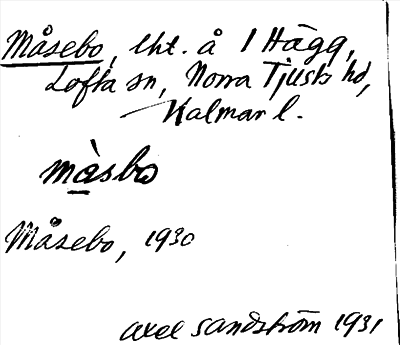 Måsebo, lht. å 1 Hägg,
Lofta sn, Norra Tjusts hd,
Kalmar l.
màsbo
Måsebo, 1930
Axel Sandström 1931